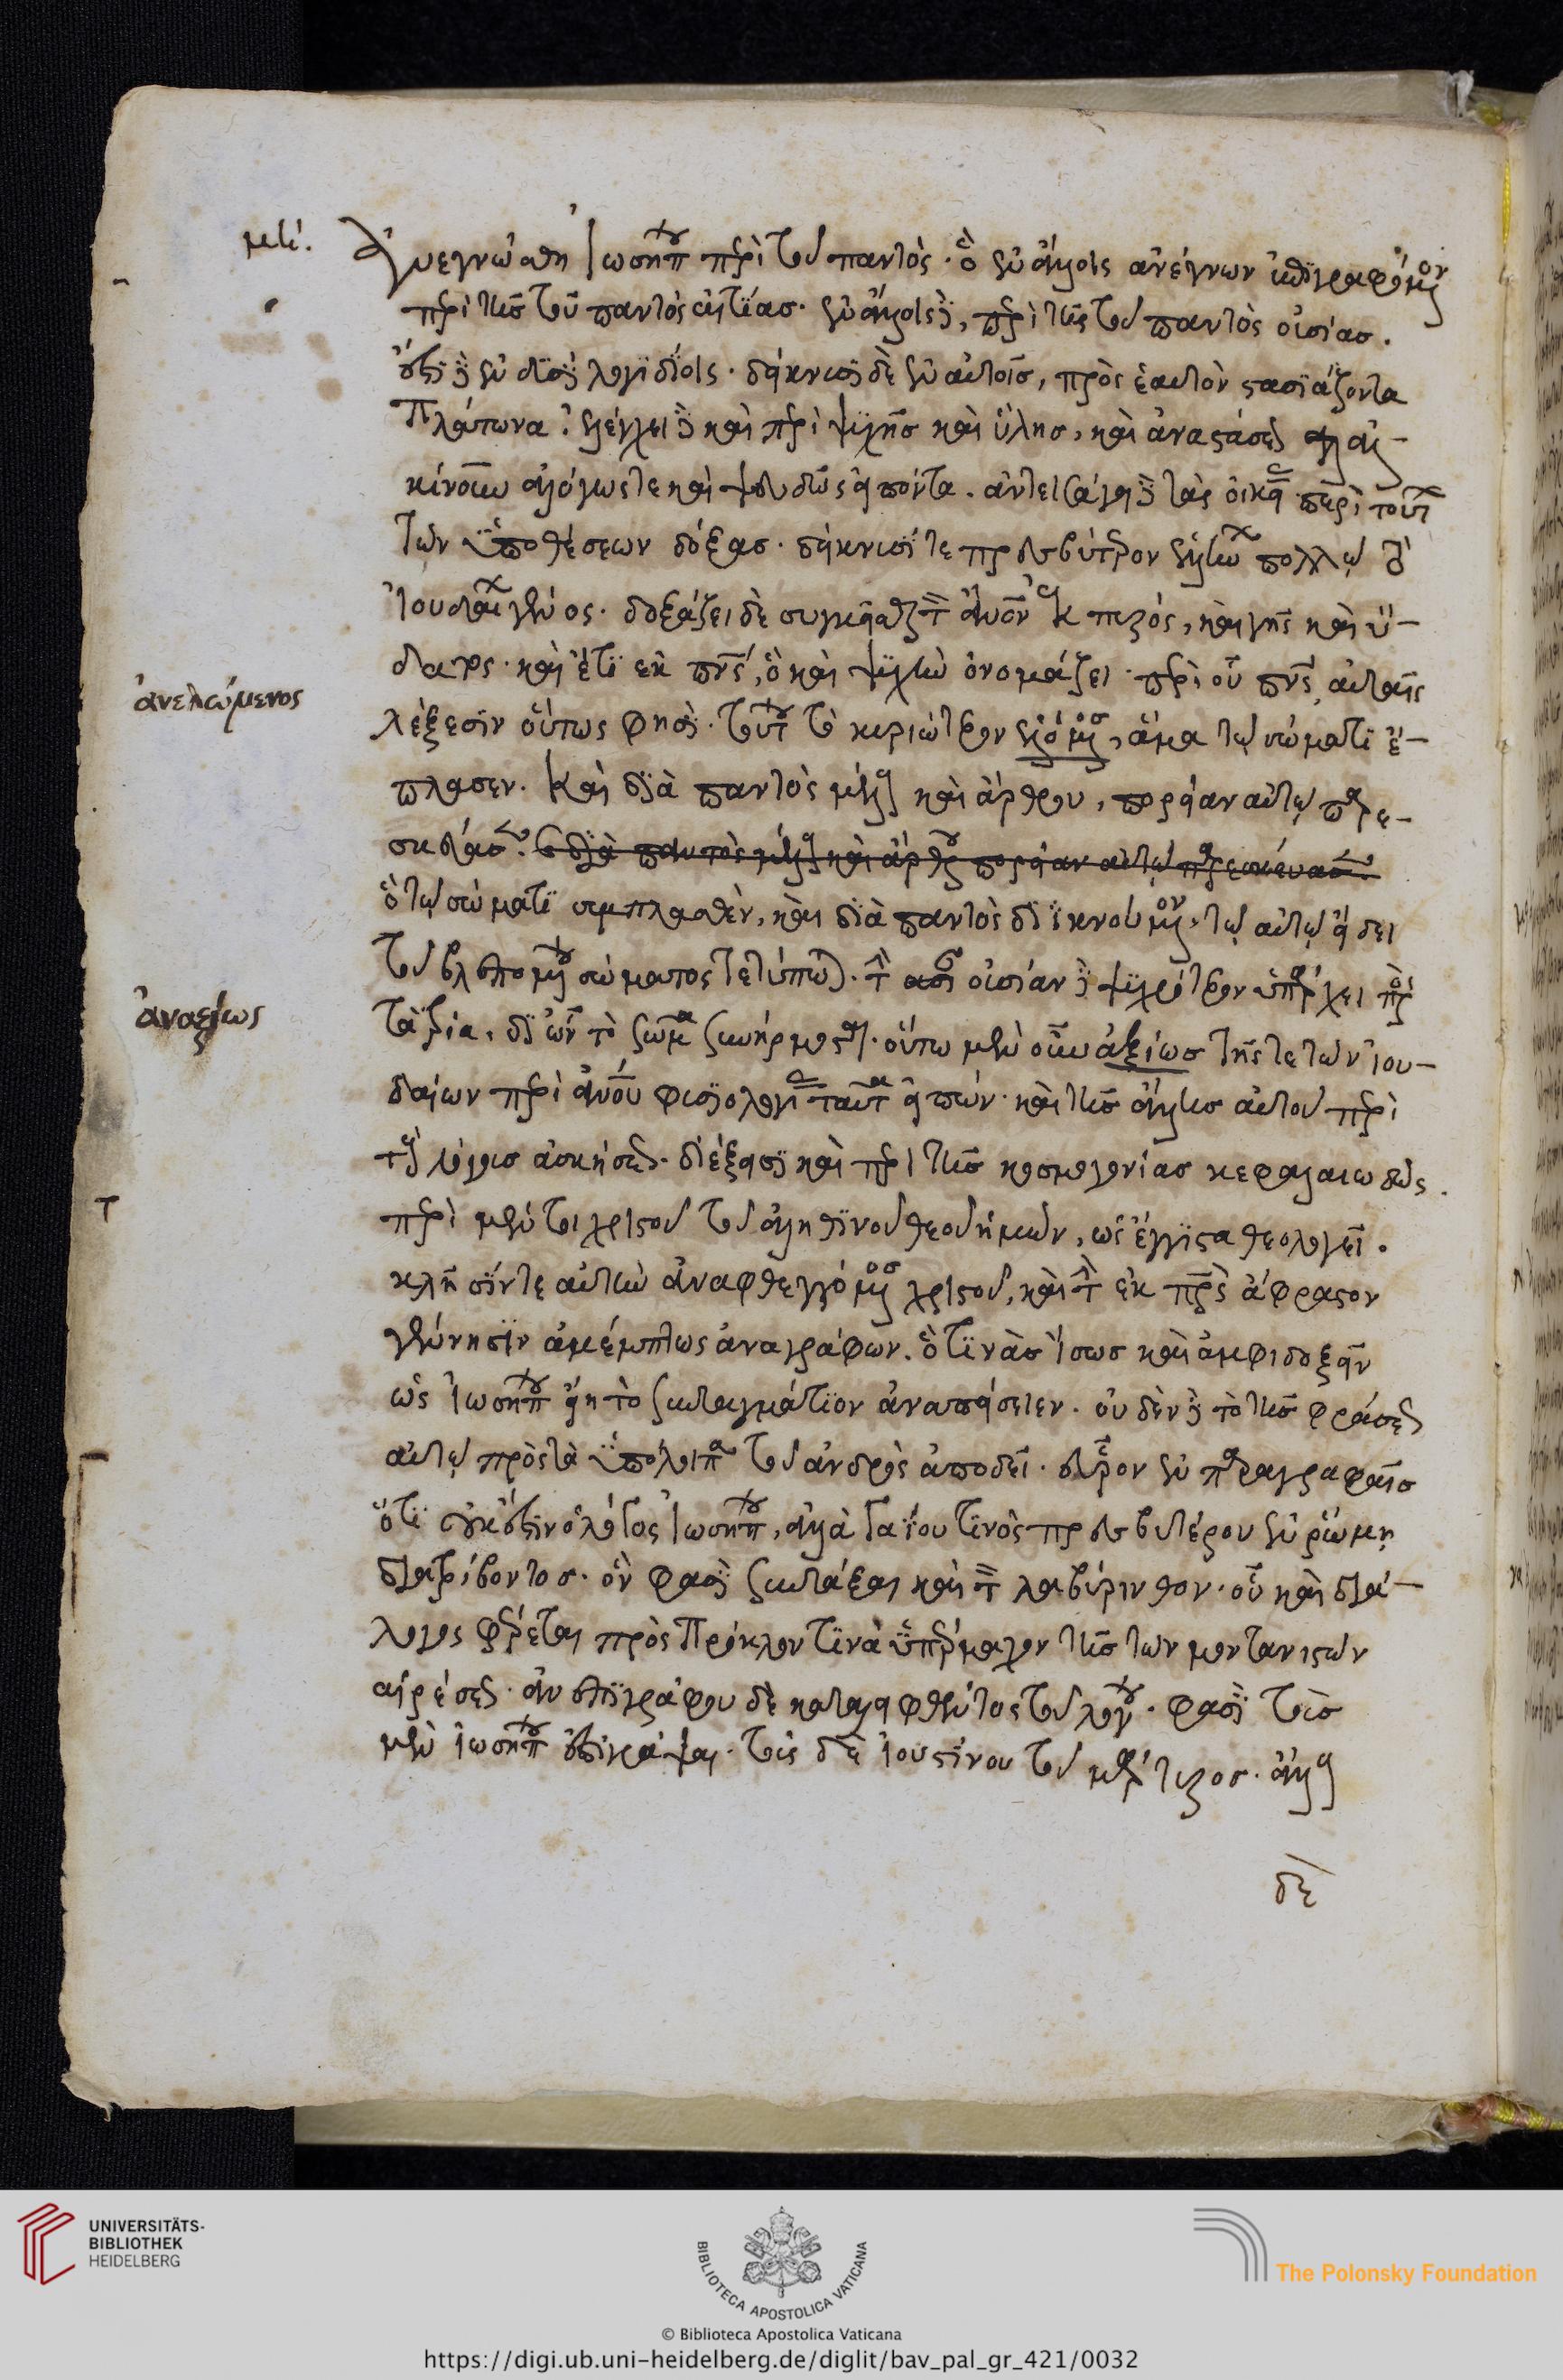 μη΄.
Ἀνεγνώσθη Ἰωσήπου περὶ τοῦ παντὸς· ὃ ἐν ἄλλοις ἀνέγνων ἐπιγραφόμενον
περὶ τῆς τοῦ παντὸς αἰτίας· ἐν ἄλλοις δὲ, περὶ τῆς τοῦ παντὸς οὐσίας.
ἔστι δὲ ἐν δυσὶ λογιδίοις· δείκνυσι δὲ ἐν αὐτοῖς, πρὸς ἑαυτὸν στασιάζοντα
Πλάτωνα· ἐλέγχει δὲ καὶ περὶ ψυχῆς καὶ ὕλης, καὶ ἀναστάσεως ἀλ-
κίνουν ἀλόγως τε καὶ ψευδῶς εἰπόντα. ἀντεισάγει δὲ τὰς οἰκείας περὶ τούτων
τῶν ὑποθέσεων δόξας· δείκνυσί τε πρεσβύτερον ἑλλήνων πολλῷ τὸ
Ἰουδαίων γένος· δοξάζει δὲ συγκεῖσθαι τὸν ἄνθρωπον ἐκ πυρός, καὶ γῆς καὶ ὕ-
δατος· καὶ ἔτι ἐκ πνεύματος, ὃ καὶ ψυχὴν ὀνομάζει· περὶ οὗ πνεύματος, αὐταῖς
ἀνελόμενος
λέξεσιν οὕτως φησί· τούτου τὸ κυριώτερον ἑλόμενος, ἅμα τῷ σώματι ἔ-
πλασεν. καὶ διὰ παντὸς μέλους καὶ ἄρθρου, πορείαν αὐτῷ παρε-
σκεύασεν. καὶ διὰ παντὸς μέλους καὶ ἄρθρου πορείαν αὐτῷ παρεσκεύασεν.
ὃ τῷ σώματι συμπλασθὲν, καὶ διὰ παντὸς διϊκνούμενον, τῷ αὐτῷ εἴδει
τοῦ βλεπομένου σώματος τετύπωται. τὴν οὐσίαν δὲ ψυχρότερον ὑπάρχει πρὸς
ἀναξίως
τὰ τρία, δι' ὧν τὸ σῶμα συνήρμοσται. οὕτω μὲν οὖν ἀξίως τῆς τε τῶν ἰου-
δαίων περὶ ἀνθρώπου φυσιολογίας ταῦτα εἰπών· καὶ τῆς ἄλλης αὐτοῦ περὶ
τοὺς λόγους ἀσκήσεως. διέξεισι καὶ περὶ τῆς κοσμογονίας κεφαλαιωδῶς.
περὶ μέντοι χριστοῦ τοῦ ἀληθινοῦ θεοῦ ἡμῶν, ὡς ἔγγιστα θεολογεῖ.
κλῆσίν τε αὐτὴν ἀναφθεγγόμενος χριστοῦ, καὶ τὴν ἐκ πατρὸς ἄφραστον
γέννησιν ἀμέμπτως ἀναγράφων. ὅ τινὰς ἴσως καὶ ἀμφιδοξεῖν
ὡς Ἰωσήπου εἴη τὸ συνταγμάτιον ἀναπείσειεν. οὐδὲν δὲ τὸ τῆς φράσεως
αὐτῷ πρὸς τὰ ὑπόλοιπα τοῦ ἀνδρὸς ἀποδεῖ. εὗρον ἐν παραγραφαῖς
ὅτι οὐκ ἔστιν ὁ λόγος Ἰωσήπου, ἀλλὰ Γαΐου τινὸς πρεσβυτέρου ἐν ῥώμῃ
διατρίβοντος. ὃν φασὶ συντάξαι καὶ τὸν λαβύρινθον. οὗ καὶ διά-
λογος φέρεται πρὸς Πρόκλον τινὰ ὑπέρμαχον τῆς τῶν μοντανιστῶν
αἱρέσεως. ἀνεπιγράφου δὲ καταλειφθέντος τοῦ λόγου. φασὶ τοὺς
μὲν Ἰωσήπου ἐπιγράψαι. τοὺς δὲ Ἰουστίνου τοῦ μάρτυρος. ἄλλους
δὲ
UNIVERSITÄTS-
BIBLIOTHEK
HEIDELBERG
BIBLIOTECA APOSTOLICA VATICANA
The Polonsky Foundation
© Biblioteca Apostolica Vaticana
https://digi.ub.uni-heidelberg.de/diglit/bav_pal_gr_421/0032